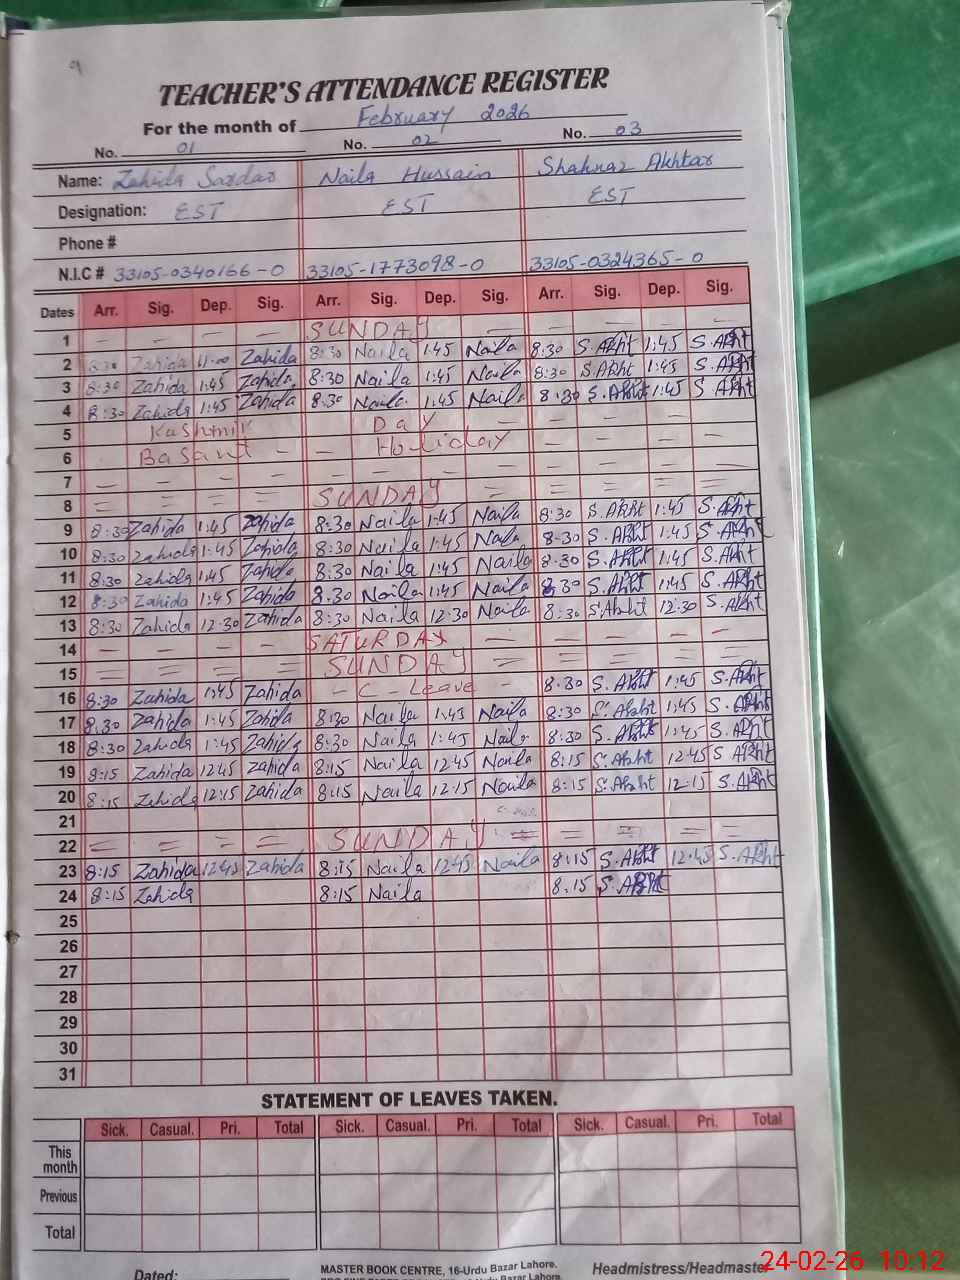 TEACHER'S ATTENDANCE REGISTER
For the month of February 2026
No. 01 No. 02 No. 03
Name: Zahida Sardar Naila Hussain Shahnaz Akhtar
Designation: EST EST EST
Phone #
N.I.C # 33105-0340166-0 33105-1773098-0 33105-0324365-0
Dates Arr. Sig. Dep. Sig. Arr. Sig. Dep. Sig. Arr. Sig. Dep. Sig.
1 - - - - SUNDAY - - - - -
2 8:30 Zahida 11:00 Zahida 8:30 Naila 1:45 Naila 8:30 S.Akht 1:45 S.Akht
3 8:30 Zahida 1:45 Zahida 8:30 Naila 1:45 Naila 8:30 S.Akht 1:45 S.Akht
4 8:30 Zahida 1:45 Zahida 8:30 Naila 1:45 Naila 8:30 S.Akht 1:45 S.Akht
5 Kashmir Day - - - -
6 Basant - - Holiday - - - -
7 - - - - - - - - - - - -
8 = = = = SUNDAY = = = = =
9 8:30 Zahida 1:45 Zahida 8:30 Naila 1:45 Naila 8:30 S.Akht 1:45 S.Akht
10 8:30 Zahida 1:45 Zahida 8:30 Naila 1:45 Naila 8:30 S.Akht 1:45 S.Akht
11 8:30 Zahida 1:45 Zahida 8:30 Naila 1:45 Naila 8:30 S.Akht 1:45 S.Akht
12 8:30 Zahida 1:45 Zahida 8:30 Naila 1:45 Naila 8:30 S.Akht 1:45 S.Akht
13 8:30 Zahida 12:30 Zahida 8:30 Naila 12:30 Naila 8:30 S.Akht 12:30 S.Akht
14 - - - - SATURDAY - - - - -
15 = = = = SUNDAY = = = = =
16 8:30 Zahida 1:45 Zahida - C - Leave - 8:30 S.Akht 1:45 S.Akht
17 8:30 Zahida 1:45 Zahida 8:30 Naila 1:45 Naila 8:30 S.Akht 1:45 S.Akht
18 8:30 Zahida 1:45 Zahida 8:30 Naila 1:45 Naila 8:30 S.Akht 1:45 S.Akht
19 8:15 Zahida 12:45 Zahida 8:15 Naila 12:45 Naila 8:15 S.Akht 12:45 S.Akht
20 8:15 Zahida 12:15 Zahida 8:15 Naila 12:15 Naila 8:15 S.Akht 12:15 S.Akht
21
22 = = = = SUNDAY = = = = =
23 8:15 Zahida 12:45 Zahida 8:15 Naila 12:45 Naila 8:15 S.Akht 12:45 S.Akht
24 8:15 Zahida 8:15 Naila 8:15 S.Akht
25
26
27
28
29
30
31
STATEMENT OF LEAVES TAKEN.
Sick. Casual. Pri. Total Sick. Casual. Pri. Total Sick. Casual. Pri. Total
This month
Previous
Total
Dated: MASTER BOOK CENTRE, 16-Urdu Bazar Lahore. Headmistress/Headmaster
Urdu Bazar Lahore.
24-02-26 10:12